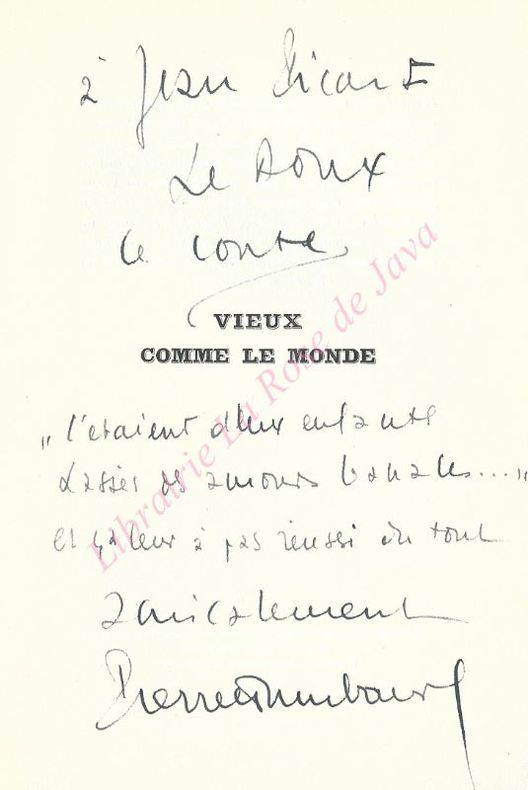 à Jean Sicart
Le Doux
ce conte
VIEUX
COMME LE MONDE
Librairie La Rose de Java
„ C'étaient deux enfants
Lassés des amours banales.... "
et ça leur a pas réussi du tout
amicalement
Pierre